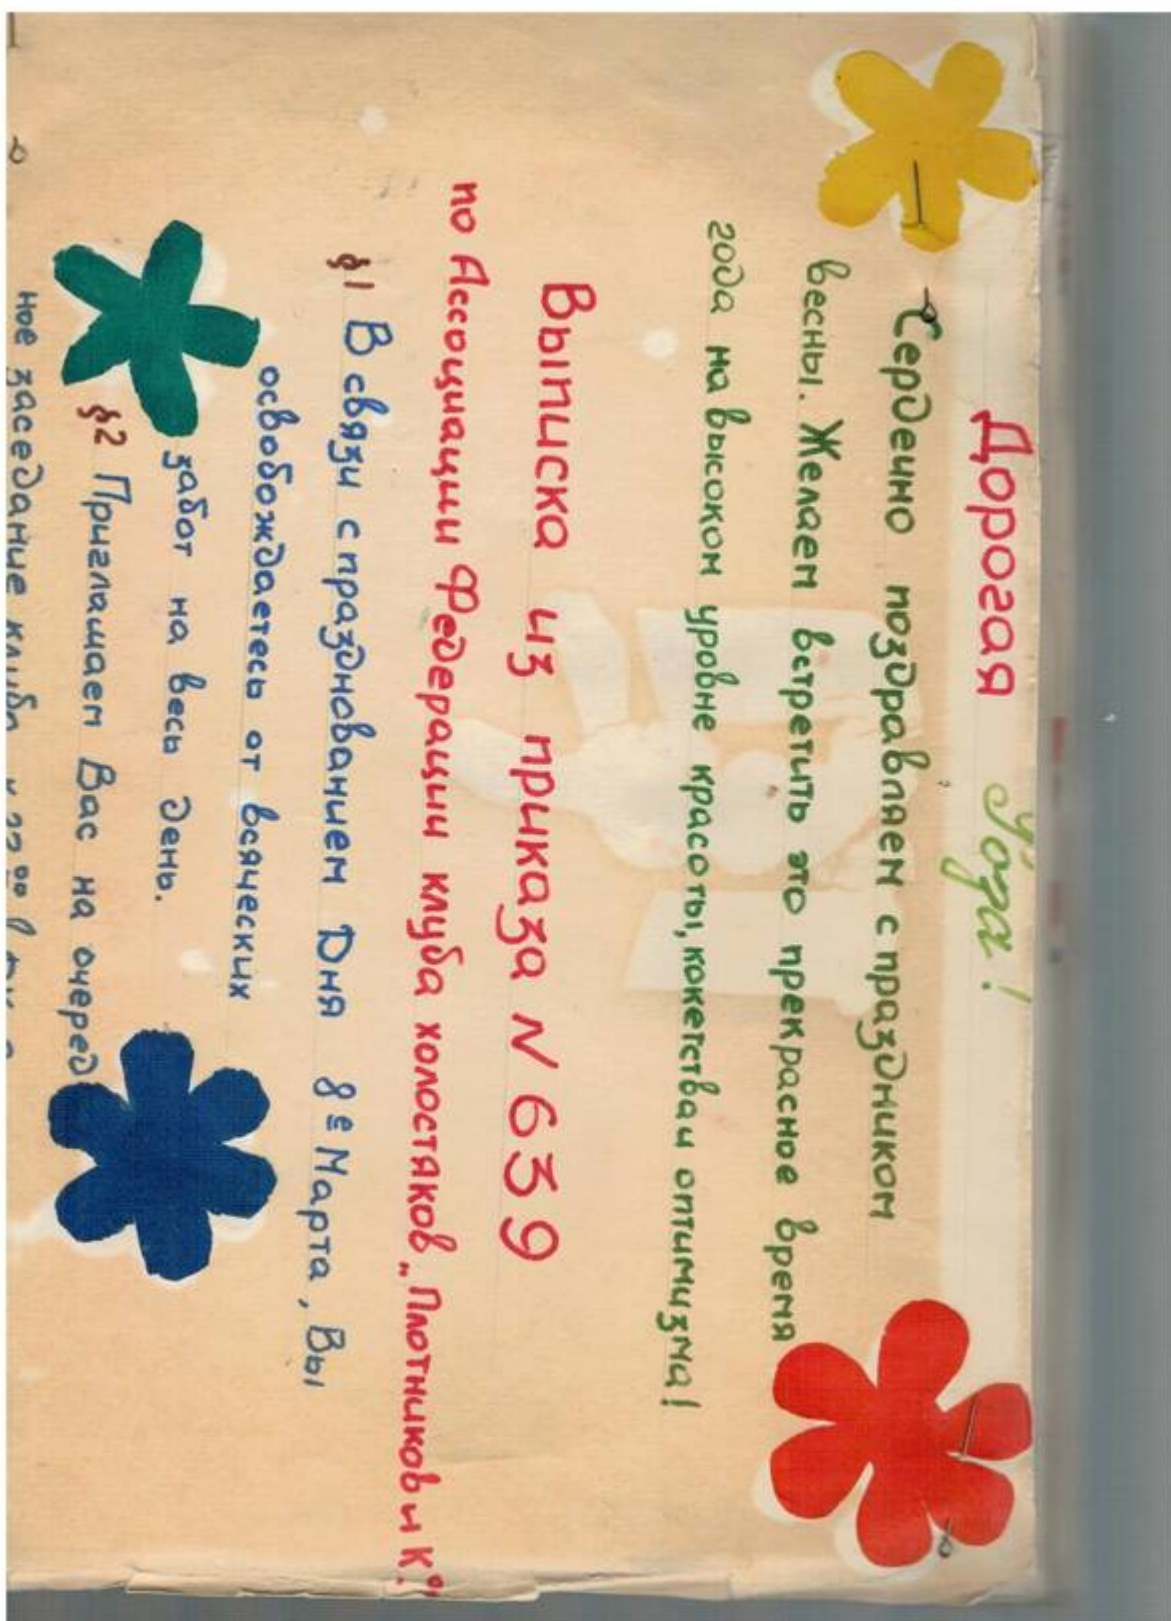 Дорогая Юра!
Сердечно поздравляем с праздником
весны. Желаем встретить это прекрасное время
года на высоком уровне красоты, кокетства и оптимизма!
Выписка из приказа N 639
по Ассоциации Федерации клуба холостяков „Плотников и К°"
§1 В связи с празднованием Дня 8ᵉ Марта, Вы
освобождаетесь от всяческих
забот на весь день.
§2 Приглашаем Вас на очеред
ное заседание клуба к 22⁰⁰ в